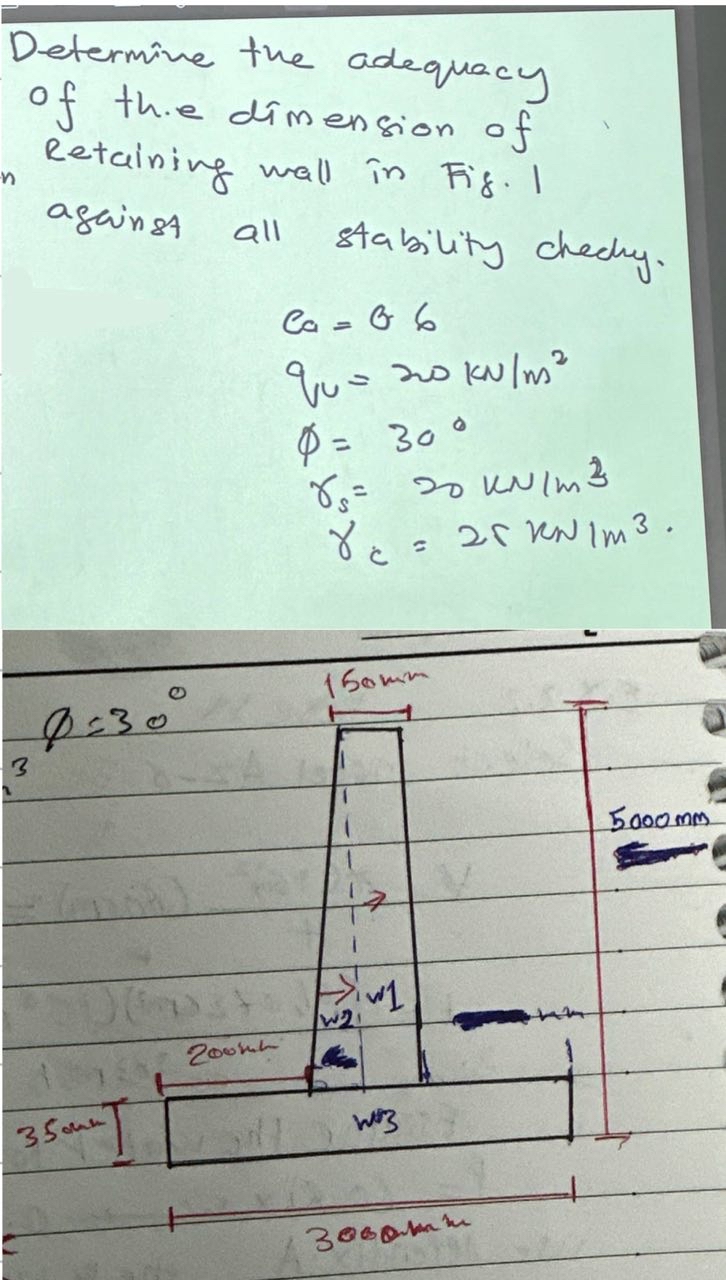 Determine the adequacy
of the dimension of
Retaining wall in Fig. 1
n
against all stability
qu = 20 KN/m²
ϕ = 30°
γs = 20 KN/m3
γc = 25 KN/m³.
150mm
ϕ = 30°
3
5000mm
w1
w2
mm
200mm
350mm
w3
3000mm